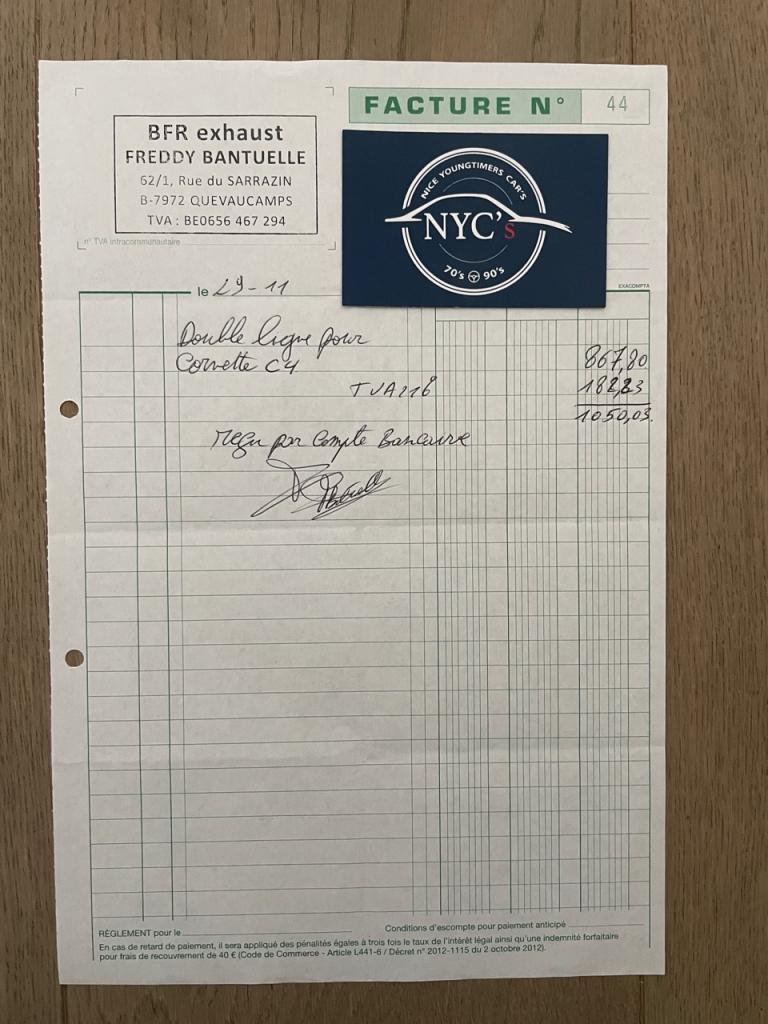 FACTURE N° 44
BFR exhaust
FREDDY BANTUELLE
62/1, Rue du SARRAZIN
B-7972 QUEVAUCAMPS
TVA : BE0656 467 294
n° TVA intracommunautaire
NICE YOUNGTIMERS CAR'S
NYC's
70's 90's
EXACOMPTA
le 29-11
Double ligne pour
Corvette C4 867,80
TVA 21% 182,23
1050,03
reçu par Compte Bancaire
RÈGLEMENT pour le
Conditions d'escompte pour paiement anticipé
En cas de retard de paiement, il sera appliqué des pénalités égales à trois fois le taux de l'intérêt légal ainsi qu'une indemnité forfaitaire
pour frais de recouvrement de 40 € (Code de Commerce - Article L441-6 / Décret n° 2012-1115 du 2 octobre 2012).